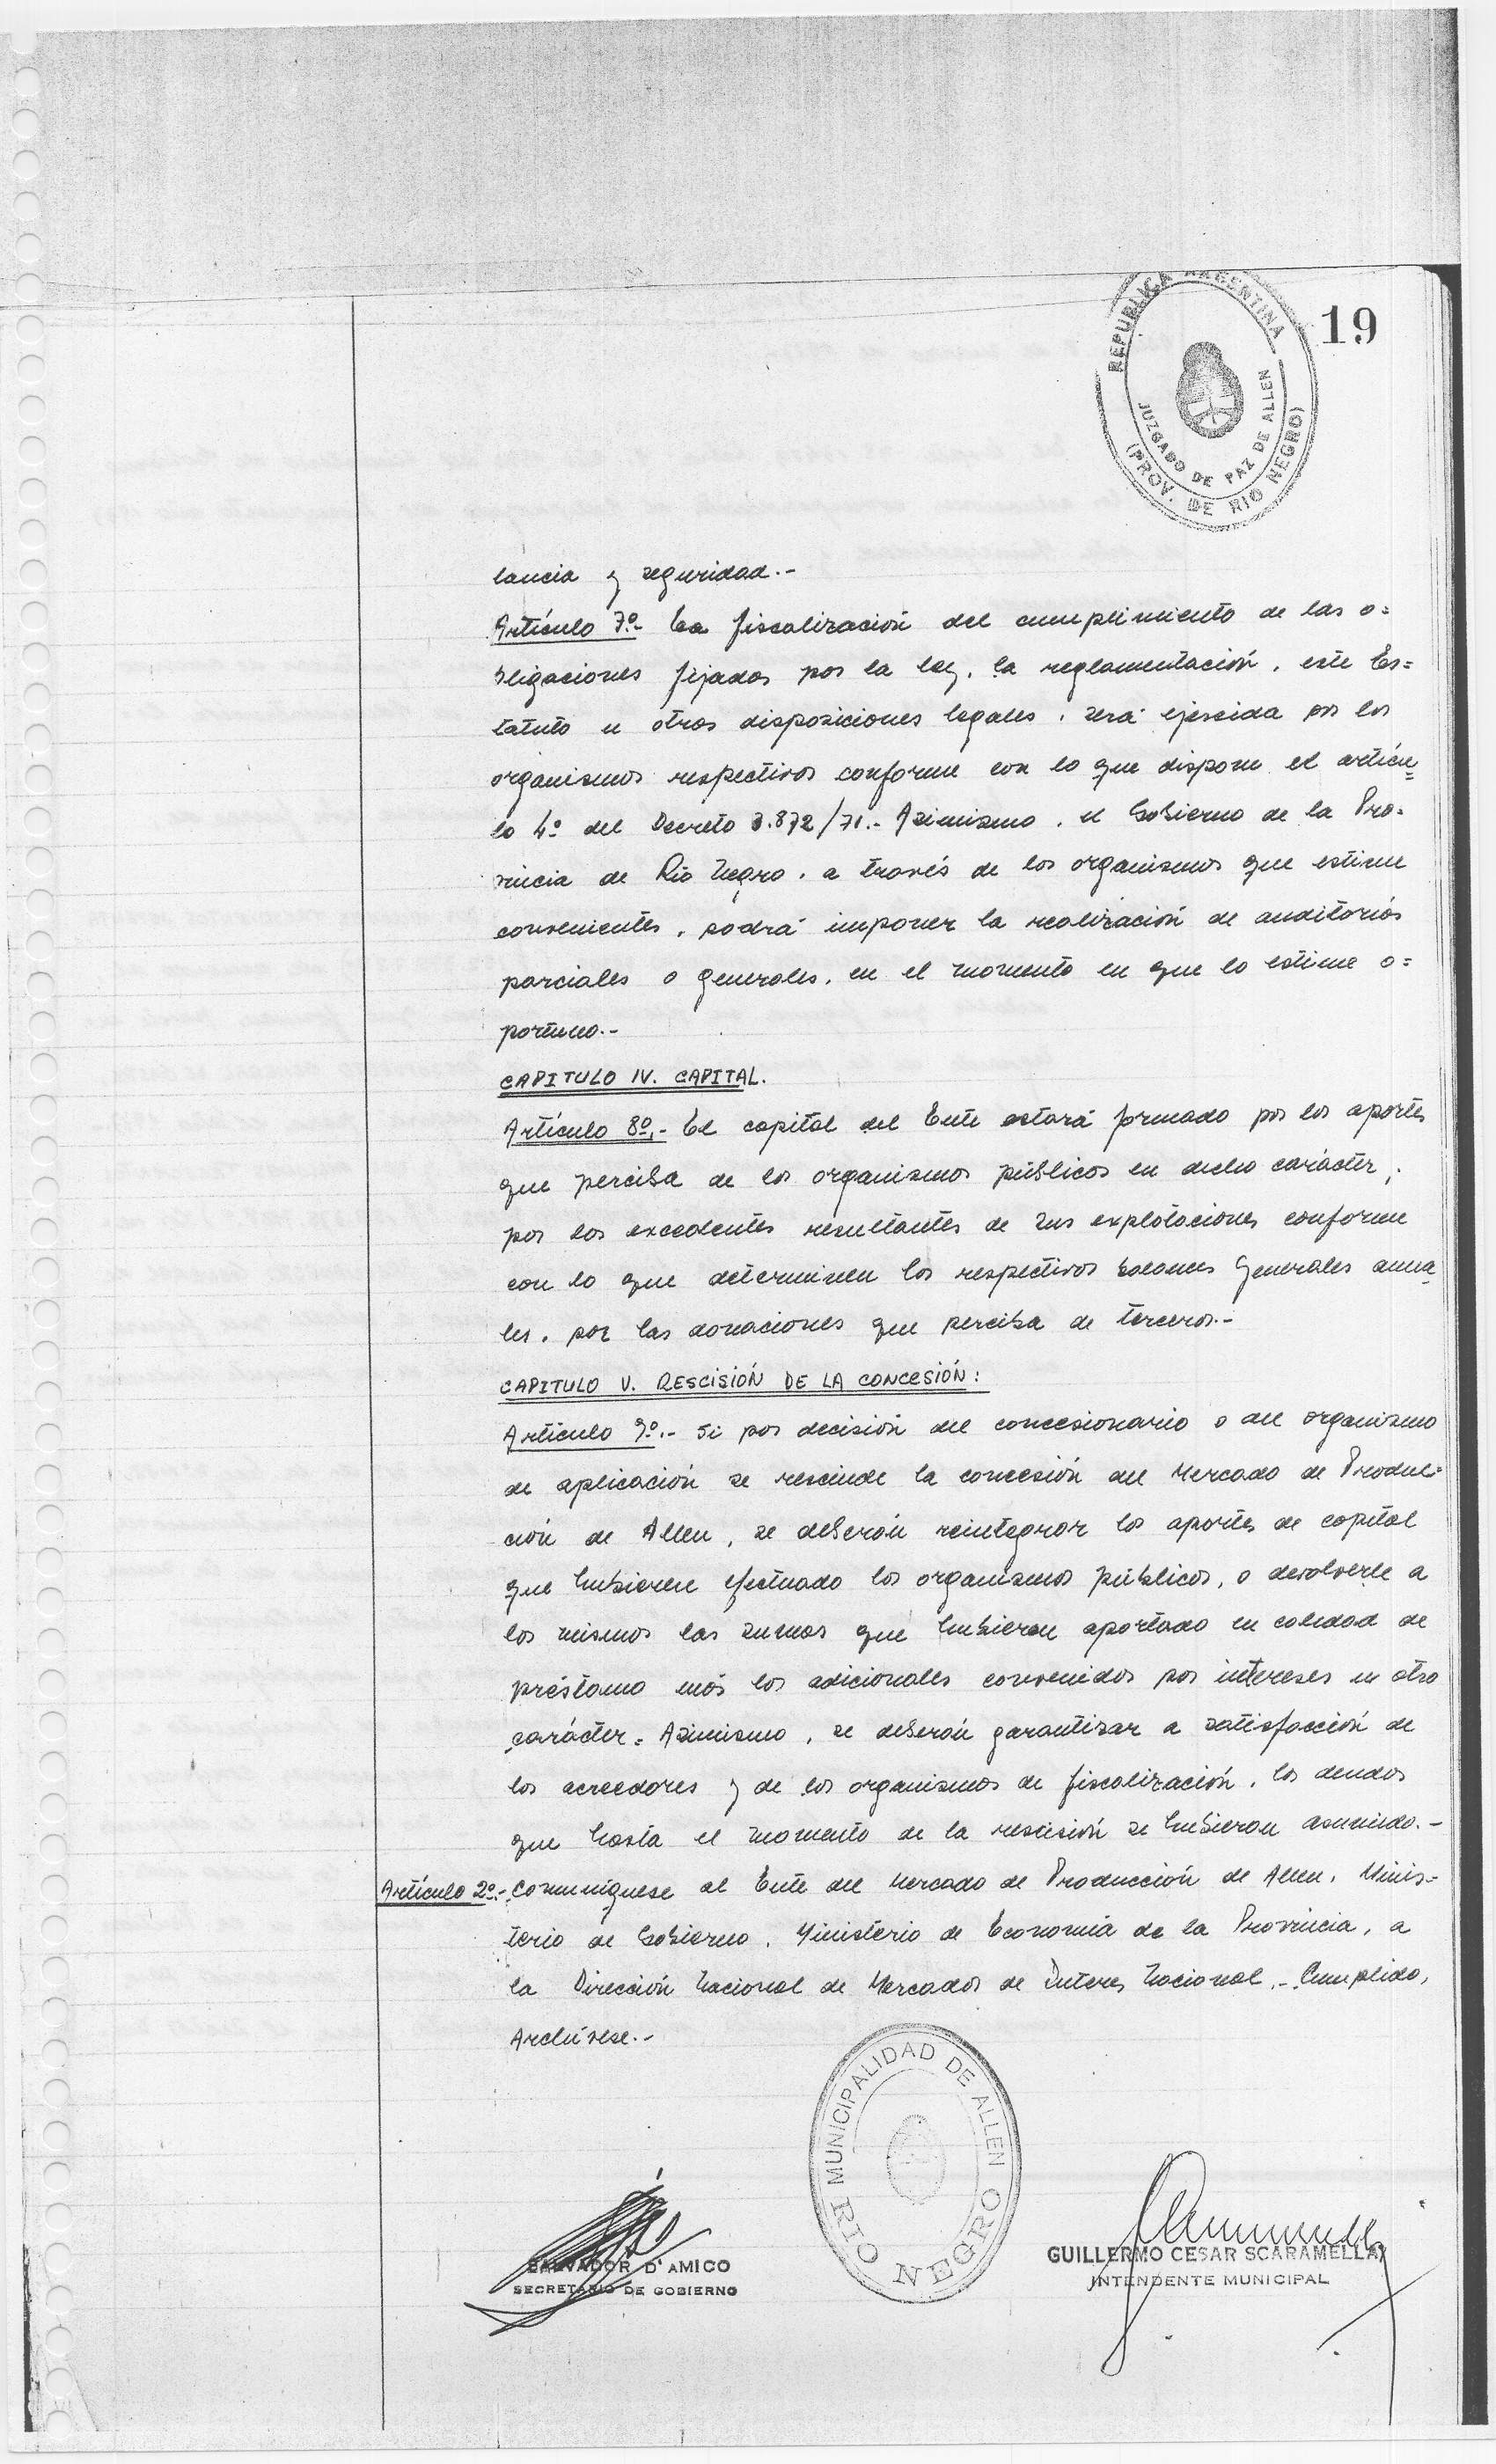 REPUBLICA ARGENTINA
JUZGADO DE PAZ DE ALLEN
(PROV. DE RIO NEGRO)
19
lancia y seguridad.-
Artículo 7º.- La fiscalización del cumplimiento de las o=
bligaciones fijadas por la ley, la reglamentación, este Es=
tatuto u otras disposiciones legales, será ejercida por los
organismos respectivos conforme con lo que dispone el artícu=
lo 4º del Decreto 3.872/71.- Asimismo, el Gobierno de la Pro=
vincia de Río Negro, a través de los organismos que estime
convenientes, podrá imponer la realización de auditorías
parciales o generales, en el momento en que lo estime o=
portuno.-
CAPITULO IV. CAPITAL.
Artículo 8º.- El capital del Ente estará formado por los aportes
que perciba de los organismos públicos en dicho carácter;
por los excedentes resultantes de sus explotaciones conforme
con lo que determinen los respectivos balances generales anua=
les, por las donaciones que perciba de terceros.-
CAPITULO V. RESCISIÓN DE LA CONCESIÓN:
Artículo 9º.- Si por decisión del concesionario o del organismo
de aplicación se rescinde la concesión del Mercado de Produc=
ción de Allen, se deberán reintegrar los aportes de capital
que hubieren efectuado los organismos públicos, o devolverle a
los mismos las sumas que hubieran aportado en calidad de
préstamo más los adicionales convenidos por intereses en otro
carácter.= Asimismo, se deberán garantizar a satisfacción de
los acreedores y de los organismos de fiscalización, las deudas
que hasta el momento de la rescisión se hubieran asumido.-
Artículo 2º.- Comuníquese al Ente del Mercado de Producción de Allen, Minis=
terio de Gobierno, Ministerio de Economía de la Provincia, a
la Dirección Nacional de Mercados de Interes Nacional.- Cumplido,
Archívese.-
MUNICIPALIDAD DE ALLEN
RIO NEGRO
SALVADOR D'AMICO
SECRETARIO DE GOBIERNO
GUILLERMO CESAR SCARAMELLA
INTENDENTE MUNICIPAL